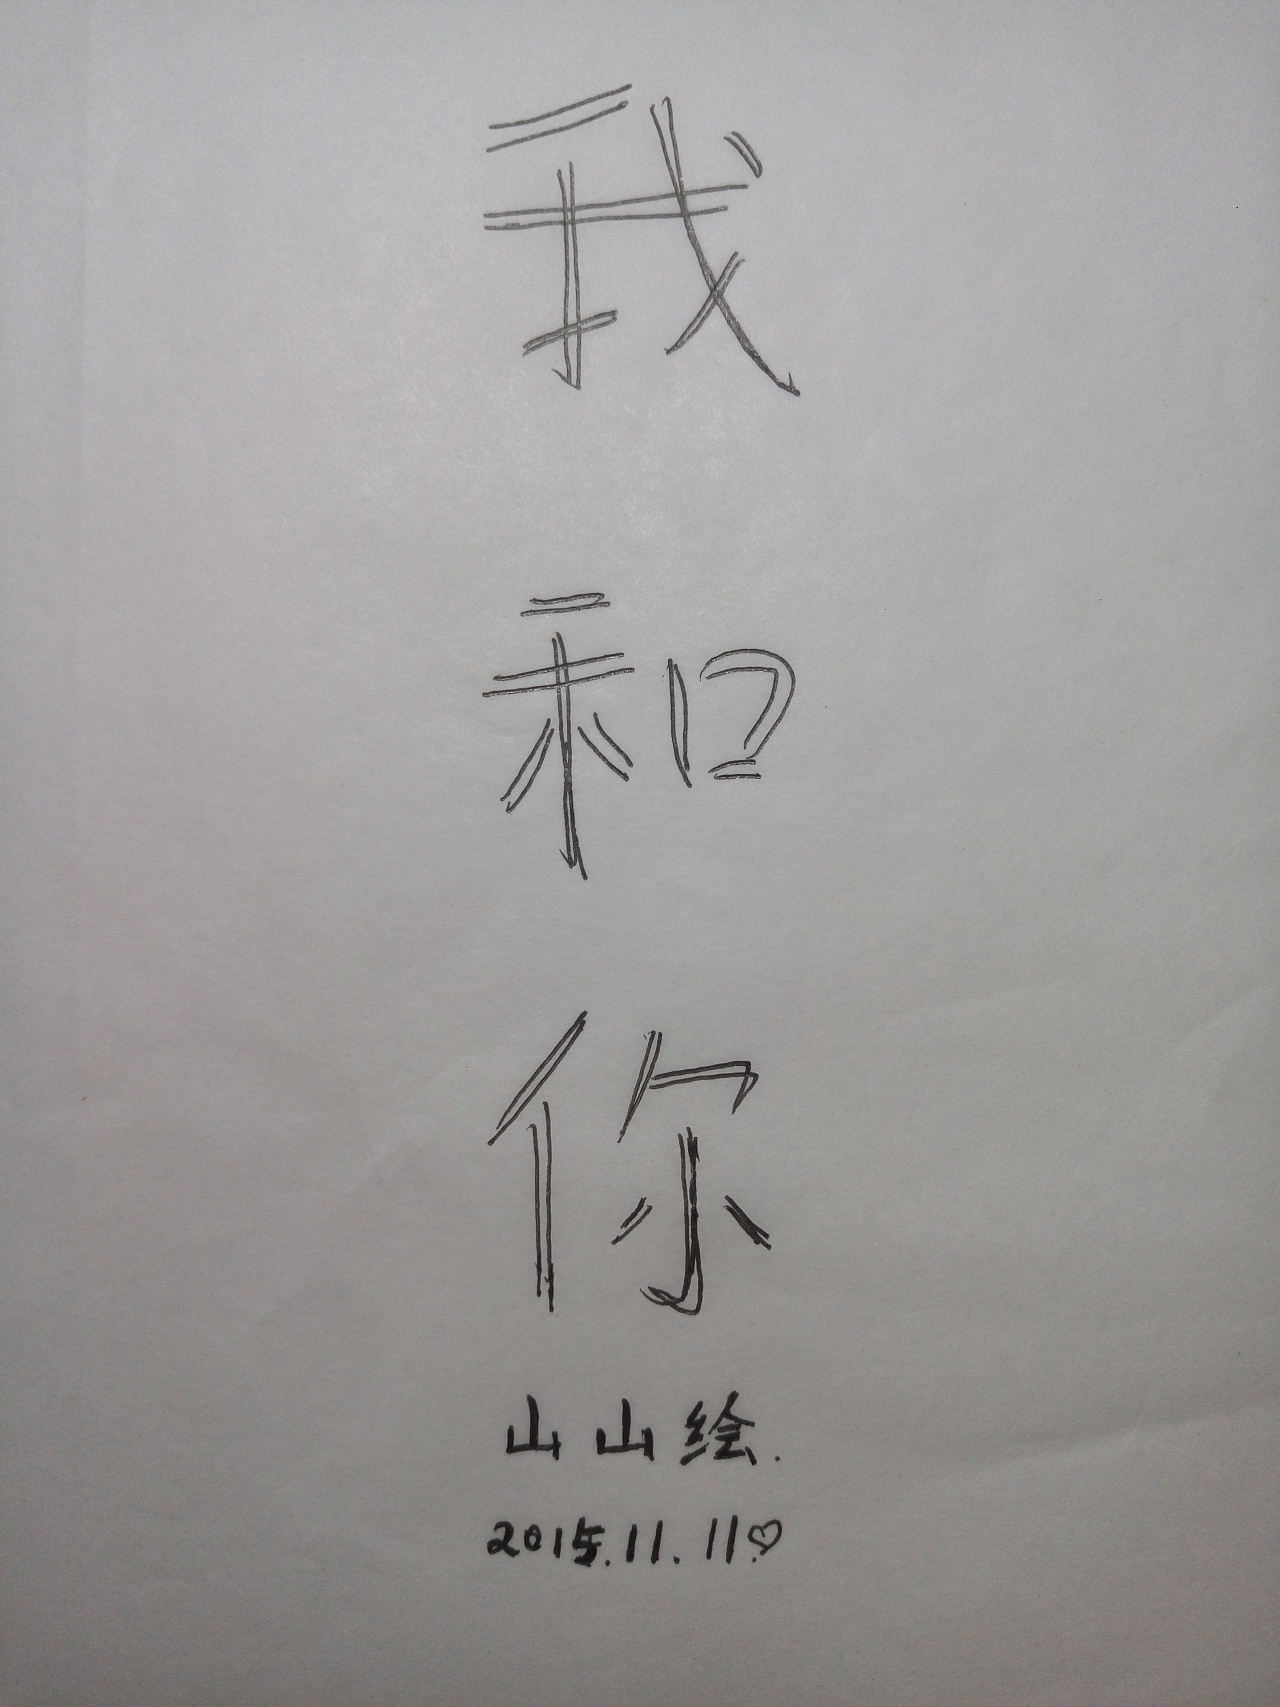 我
和
你
山山绘.
2015.11.11.♡